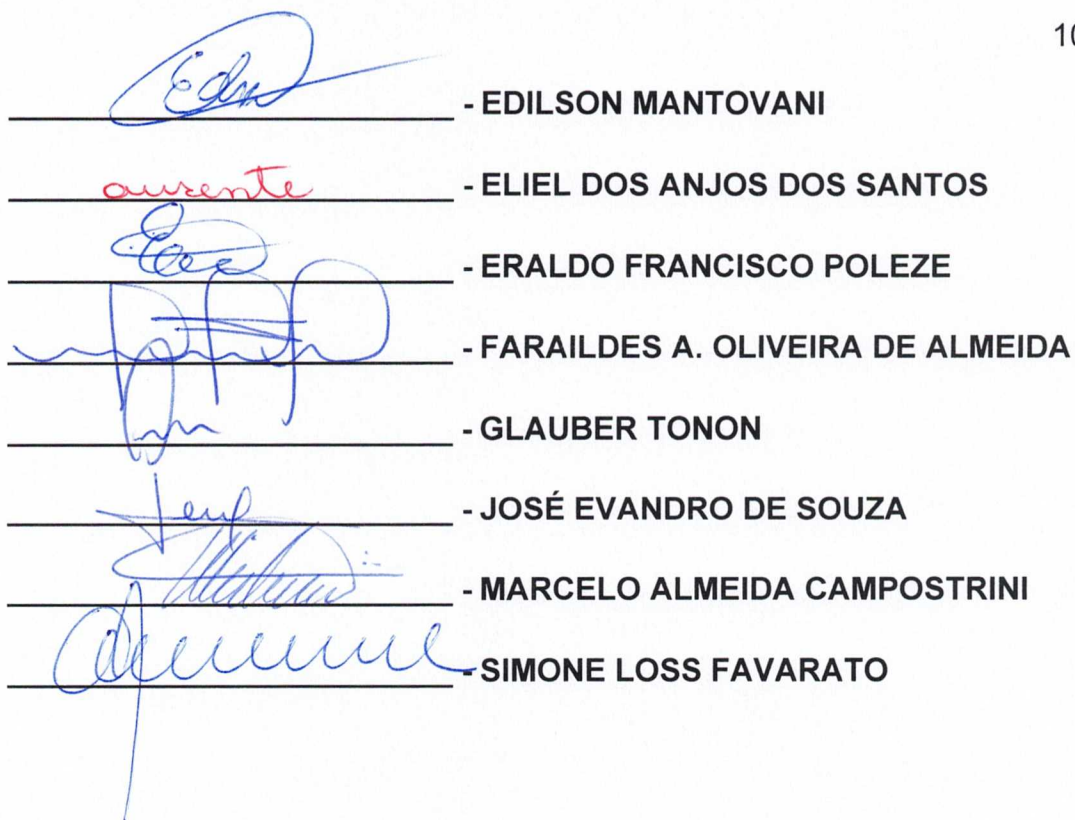 10
- EDILSON MANTOVANI
ausente - ELIEL DOS ANJOS DOS SANTOS
- ERALDO FRANCISCO POLEZE
- FARAILDES A. OLIVEIRA DE ALMEIDA
- GLAUBER TONON
- JOSÉ EVANDRO DE SOUZA
- MARCELO ALMEIDA CAMPOSTRINI
- SIMONE LOSS FAVARATO